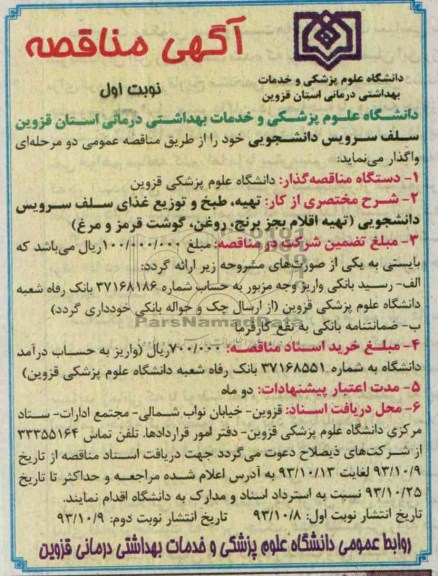 آگهی مناقصه
دانشگاه علوم پزشکی و خدمات
بهداشتی درمانی استان قزوین
نوبت اول
دانشگاه علوم پزشکی و خدمات بهداشتی درمانی استان قزوین
سلف سرویس دانشجویی خود را از طریق مناقصه عمومی دو مرحله‌ای
واگذار می‌نماید:
۱- دستگاه مناقصه‌گذار: دانشگاه علوم پزشکی قزوین
۲- شرح مختصری از کار: تهیه، طبخ و توزیع غذای سلف سرویس
دانشجویی (تهیه اقلام بجز برنج، روغن، گوشت قرمز و مرغ)
۳- مبلغ تضمین شرکت در مناقصه: مبلغ ۱۰۰/۰۰۰/۰۰۰ ریال می‌باشد که
بایستی به یکی از صورت‌های مشروحه زیر ارائه گردد:
الف- رسید بانکی واریز وجه مزبور به حساب شماره ۳۷۱۶۸۱۸۶ بانک رفاه شعبه
دانشگاه علوم پزشکی قزوین (از ارسال چک و حواله بانکی خودداری گردد)
ParsNamadData
ب- ضمانتنامه بانکی به نفع کارفرما
۴- مبلغ خرید اسناد مناقصه: ۷۰۰/۰۰۰ ریال (واریز به حساب درآمد
دانشگاه به شماره ۳۷۱۶۸۵۵۱ بانک رفاه شعبه دانشگاه علوم پزشکی قزوین)
۵- مدت اعتبار پیشنهادات: دو ماه
۶- محل دریافت اسناد: قزوین- خیابان نواب شمالی- مجتمع ادارات- ستاد
مرکزی دانشگاه علوم پزشکی قزوین- دفتر امور قراردادها. تلفن تماس ۳۳۳۵۵۱۶۴
از شرکت‌های ذیصلاح دعوت می‌گردد جهت دریافت اسناد مناقصه از تاریخ
۹۳/۱۰/۹ لغایت ۹۳/۱۰/۱۳ به آدرس اعلام شده مراجعه و حداکثر تا تاریخ
۹۳/۱۰/۲۵ نسبت به استرداد اسناد و مدارک به دانشگاه اقدام نمایند.
تاریخ انتشار نوبت اول: ۹۳/۱۰/۸ تاریخ انتشار نوبت دوم: ۹۳/۱۰/۹
روابط عمومی دانشگاه علوم پزشکی و خدمات بهداشتی درمانی قزوین